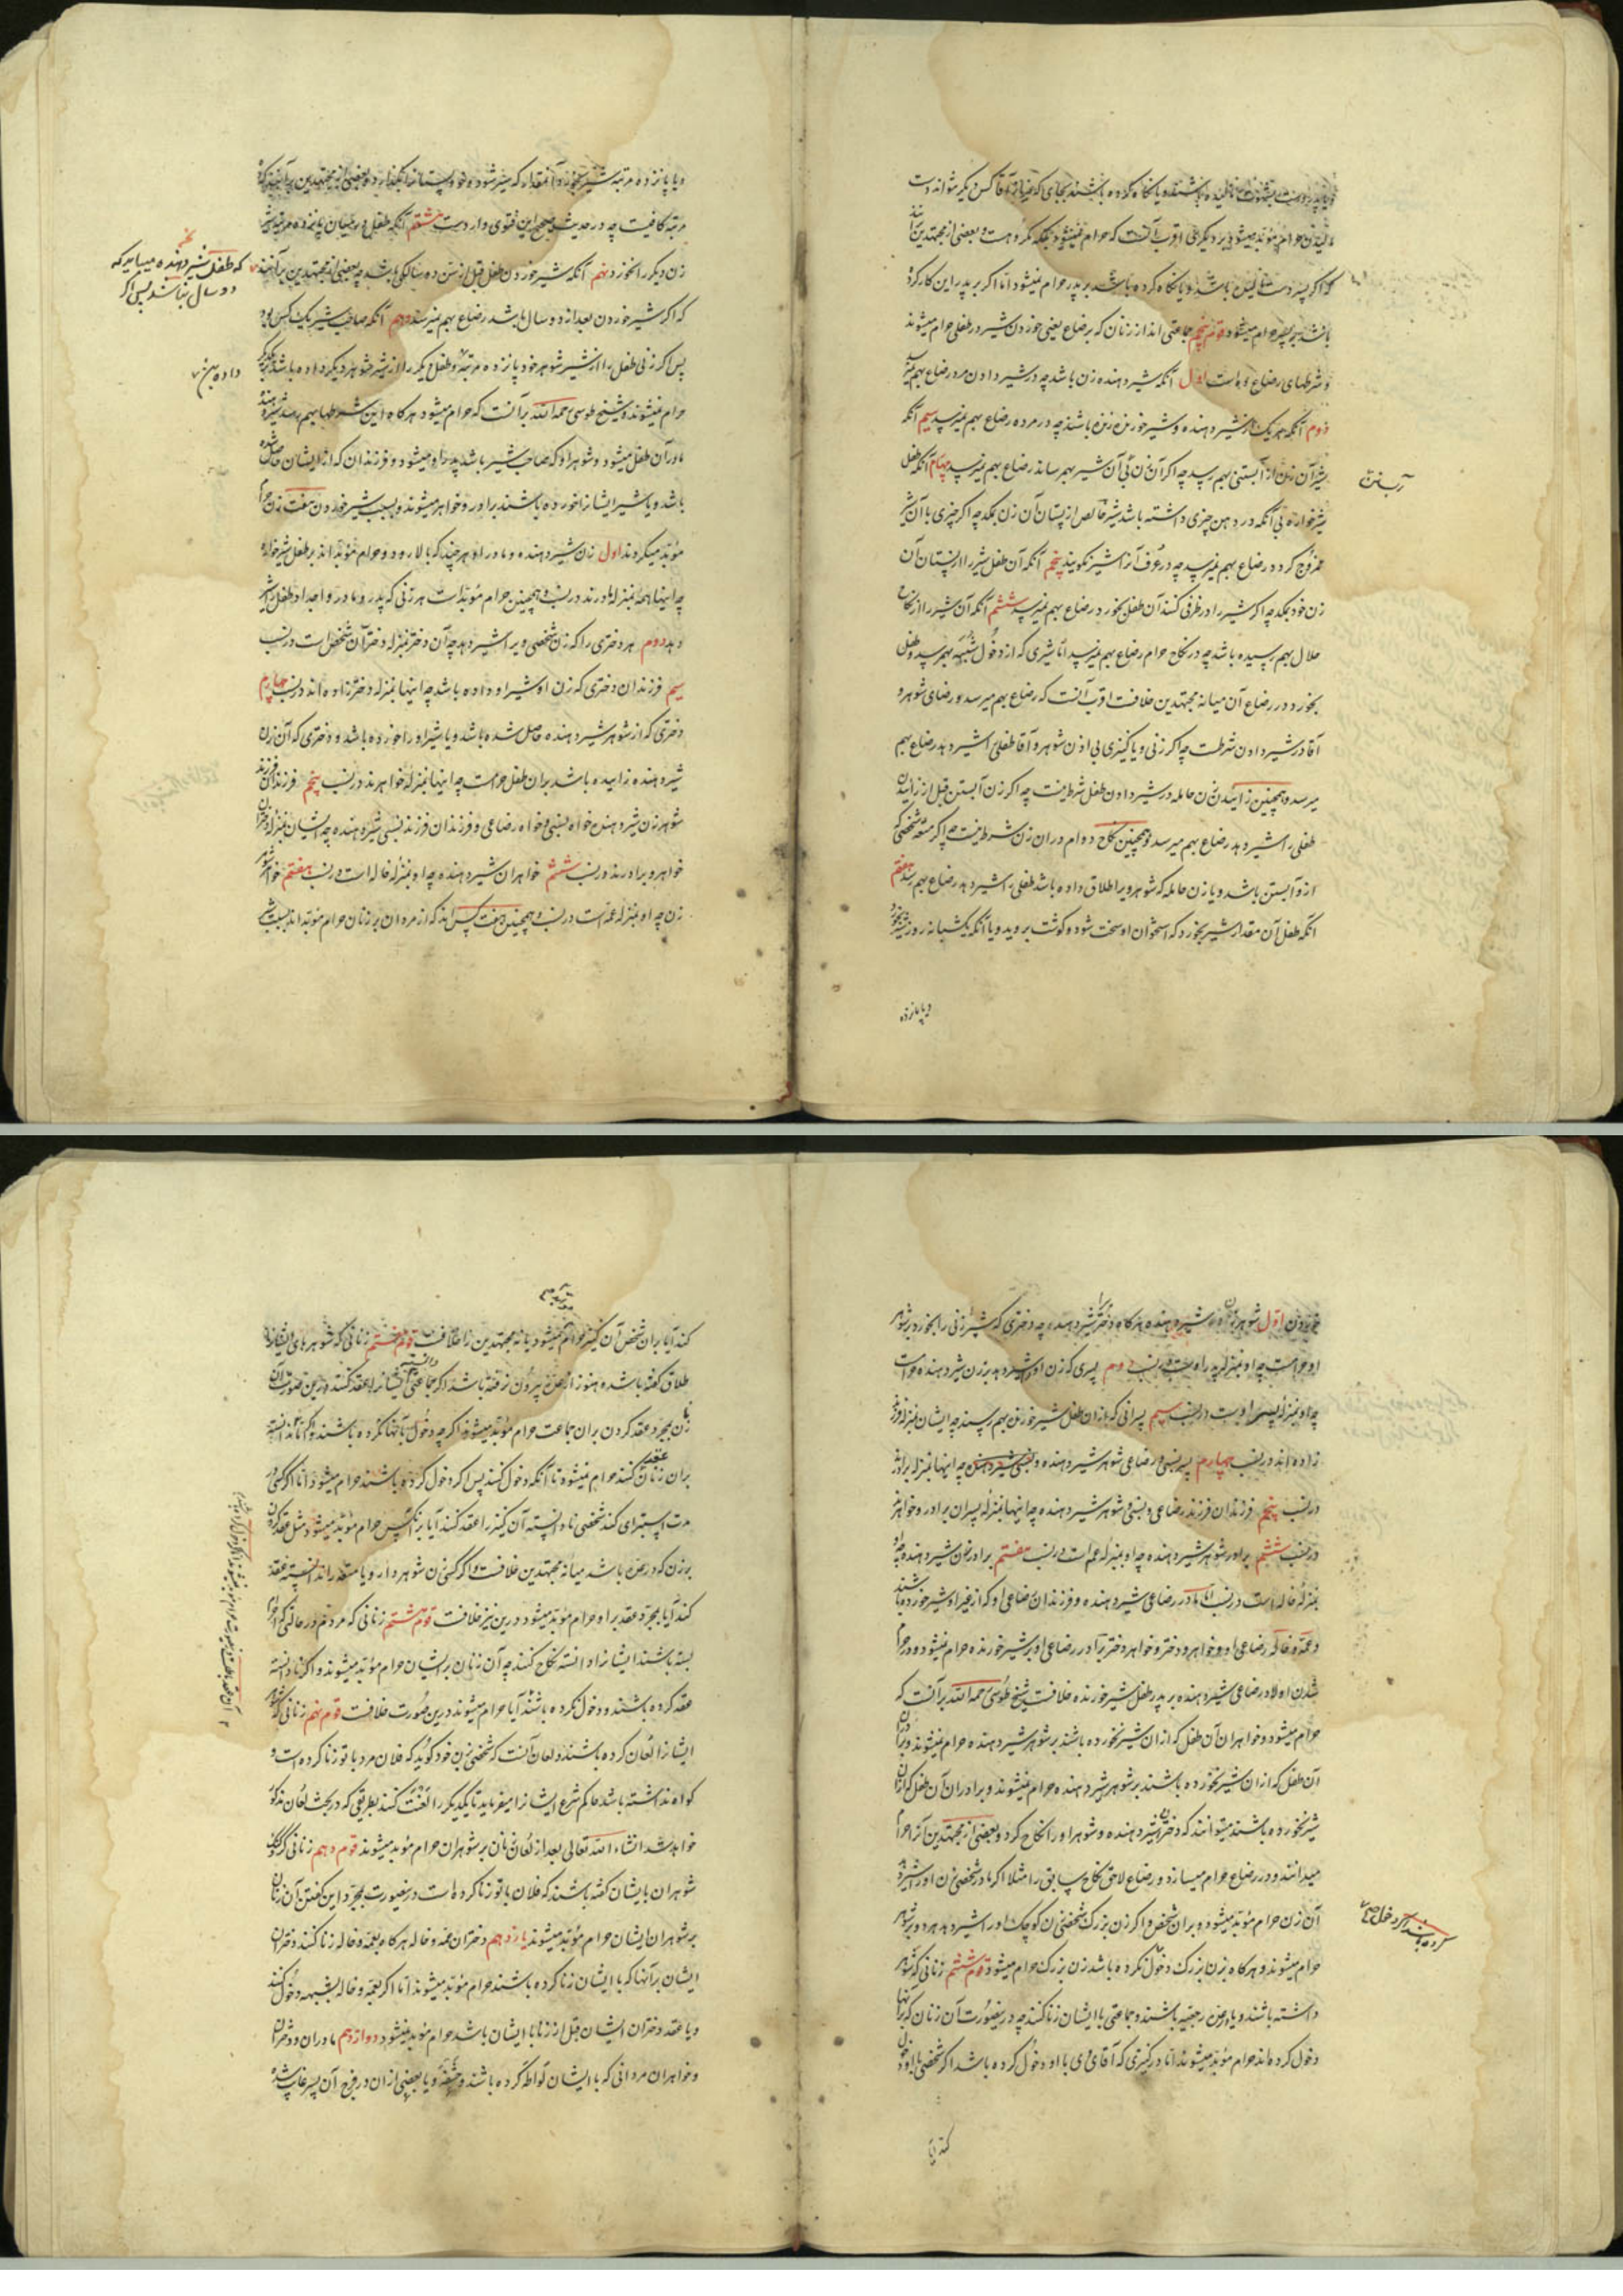 که اگر پسر دست مالیده باشد و یا نگاه کرده باشد بر پدر حرام میشود اما اگر بر پدر این کار کرده
باشد بر پسر حرام میشود قوم پنجم جماعتی اند از زنان که برضاع یعنی خوردن شیر در طفلی حرام میشوند
و شرطهای رضاع ده است اول آنکه شیر دهنده زن باشد چه در شیر دادن مرد رضاع بهم نمیرسد
دوم آنکه هر یک از شیر دهنده و شیر خورنده زنده باشند چه در مرده رضاع بهم نمیرسد سیم آنکه
شیر آن زن از آبستنی بهم رسد چه اگر آن زن بی آن شیر بهم رساند رضاع بهم نمیرسد چهارم آنکه طفل
شیرخواره بی آنکه در دهن چیزی داشته باشد شیر خالص از پستان آن زن بمکد چه اگر چیزی با آن شیر
ممزوج کردد رضاع بهم نمیرسد چه در عرف آنرا شیر نکویند پنجم آنکه آن طفل شیر را از پستان آن
زن خود بمکد چه اگر شیر را در ظرفی کنند آن طفل بخورد رضاع بهم نمیرسد ششم آنکه آن شیر را از نکاح
حلال بهم رسیده باشد چه در نکاح حرام رضاع بهم نمیرسد اما شیری که از دخول شبهه بهم رسد و طفل
بخورد در رضاع آن میانه مجتهدین خلافست اقرب آنست که رضاع بهم میرسد و رضای شوهر و
آقا در شیر دادن شرطست چه اگر زنی و یا کنیزی بی اذن شوهر و آقا طفلی را شیر دهد رضاع بهم
میرسد و همچنین زاییدن زن حامله در شیر دادن طفل شرط نیست چه اگر زن آبستن قبل از زاییدن
طفلی را شیر دهد رضاع بهم میرسد و همچنین نکاح دوام در آن زن شرط نیست چه اگر متعه شخصی که
از و آبستن باشد و یا زن حامله که شوهر ویرا طلاق داده باشد طفلی را شیر دهد رضاع بهم رسد هفتم
آنکه طفل آن مقدار شیر بخورد که استخوان او سخت شود و گوشت بروید و یا آنکه یکشبانه روز شیر بخورد
و یا پانزده
و یا پانزده مرتبه شیر بخورد و آنمقدار که سیر شود و خود پستانرا بگذارد و بعضی از مجتهدین بر آنند که ده
مرتبه کافیست چه در حدیث صحیح این فتوی وارد است هشتم آنکه طفل در میان پانزده مرتبه شیر
زن دیگر را نخورد نهم آنکه شیر خوردن طفل قبل از سن دو سالگی باشد چه بعضی از مجتهدین بر آنند
که طفل شیر دهنده میباید که
دو سال نباشد پس اگر
که اگر شیر خوردن بعد از دو سال باشد رضاع بهم نمیرسد دهم آنکه صاحب شیر یک کس بود
پس اگر زنی طفل را از شیر شوهر خود پانزده مرتبه و طفل دیگر را از شیر شوهر دیگر داده باشد
حرام نمیشوند و شیخ طوسی رحمه الله بر آنست که حرام میشود هرگاه این شرطها بهم رسد شیر دهنده
مادر آن طفل میشود و شوهر او که صاحب شیر باشد پدر او میشود و فرزندان که از ایشان حاصل شده
باشد و یا شیر ایشانرا خورده باشند برادر و خواهر میشوند و بسبب شیر خوردن هفت زن حرام
مؤبد میگردند اول زن شیر دهنده و مادر او هر چند که بالا رود و حرام مؤبداند بر طفل شیرخواره
چه اینها همه بمنزله مادرند در نسب و همچنین حرام مؤبد است هر زنی که پدر و مادر و اجداد طفل را شیر
دهد دوم هر دختری را که زن شخصی ویرا شیر دهد چه آن دختر بمنزله دختر آن شخص است در نسب
سیم فرزندان دختری که زن او شیر او داده باشد چه اینها بمنزله دختر زاده اند در نسب چهارم
دختری که از شوهر شیر دهنده حاصل شده باشد و یا شیر او را خورده باشد و دختری که آن زن
شیر دهنده زاییده باشد بر آن طفل حرامست چه اینها بمنزله خواهرند در نسب پنجم فرزندان فرزند
شوهر زن شیر دهنده خواه نسبی و خواه رضاعی و فرزندان فرزند نسبی شیر دهنده چه ایشان بمنزله دختران
خواهر و برادرند در نسب ششم خواهران شیر دهنده چه او بمنزله خاله است در نسب هفتم خواهر شوهر
زن چه او بمنزله عمه است در نسب و همچنین هفت کس اند که از مردان بر زنان حرام مؤبداند بسبب شیر
خوردن اول شوهر زن شیر دهنده هرگاه دختر را شیر دهد چه دختری که شیر زنی را بخورد بر شوهر
او حرامست چه او بمنزله پدر اوست در نسب دوم پسری که زن او را شیر دهد بر زن شیر دهنده حرامست
چه او بمنزله پسر اوست در نسب سیم پسرانی که از آن طفل شیر خورنده بهم رسند چه ایشان بمنزله فرزند
زاده اند در نسب چهارم پسر نسبی و رضاعی شوهر شیر دهنده و نسبی شیر دهنده چه اینها بمنزله برادرند
در نسب پنجم فرزندان فرزند رضاعی و نسبی شوهر شیر دهنده چه اینها بمنزله پسران برادر و خواهرند
در نسب ششم برادر شوهر شیر دهنده چه او بمنزله عم است در نسب هفتم برادر زن شیر دهنده چه او
بمنزله خاله است در نسب اما مادر رضاعی شیر دهنده و فرزندان رضاعی او که از غیر او شیر خورده باشند
و عمه و خاله رضاعی او و خواهر و دختر و خواهر دختر برادر رضاعی او بر شیر خورنده حرام نمیشود و در حرام
شدن اولاد رضاعی شیر دهنده بر پدر طفل شیر خورنده خلافست شیخ طوسی رحمه الله بر آنست که
حرام میشود و خواهران آن طفل که از آن شیر نخورده باشند بر شوهر شیر دهنده حرام نمیشوند و برادران
آن طفل که از آن شیر نخورده باشند بر شوهر شیر دهنده حرام نمیشوند و برادران آن طفل که از آن
شیر نخورده باشند میتوانند که دختر شیر دهنده و شوهر او را نکاح کرد و بعضی از مجتهدین آنرا حرام
میدانند و در رضاع حرام میسازد و رضاع لاحق نکاح سابق را مثلا اگر مادر شخصی زن او را شیر دهد
آن زن حرام مؤبد میشود بر آن شخص و اگر زن بزرگ شخصی زن کوچک او را شیر دهد هر دو بر شوهر
حرام میشوند و هرگاه بزن بزرگ دخول نکرده باشد زن بزرگ حرام میشود قوم ششم زنانی که شوهر
داشته باشند و یا در عده رجعیه باشند و جماعتی با ایشان زنا کنند چه درینصورت آن زنان که بر آنها
دخول کرده اند حرام مؤبد میشوند اما در کنیزی که آقای وی با او دخول کرده باشد اگر شخصی با او دخول
کند آیا
کند آیا بر آن شخص آن کنیز حرام میشود میانه مجتهدین خلافست قوم هفتم زنانی که شوهرهای ایشانرا
طلاق گفته باشد و هنوز از عده بیرون نرفته باشد اگر جماعتی دانسته ایشانرا عقد کنند درین صورت آن
زنان بمجرد عقد کردن بر آن جماعت حرام مؤبد میشوند اگر چه دخول بآنها نکرده باشند و اگر نادانسته
بر آن زنان عقد کنند حرام نمیشوند تا آنکه دخول کنند پس اگر دخول کرده باشند حرام میشود اما اگر کسی در
مدت استبرای کند شخصی نادانسته آن کنیز را عقد کنند آیا بر آنکس حرام مؤبد میشود مثل عقد کردن
بر زن که در عده باشد میانه مجتهدین خلافست و اگر کسی زن شوهر دار و یا متعه را دانسته عقد
کند آیا بمجرد عقد بر او حرام مؤبد میشود درین نیز خلافست قوم هشتم زنانی که مردم در حالتی که احرام
بسته باشند ایشانرا دانسته نکاح کنند چه آن زنان بر ایشان حرام مؤبد میشوند و اگر نادانسته
عقد کرده باشند و دخول نکرده باشند آیا حرام میشوند درین صورت خلافست قوم نهم زنانی که شوهر
ایشانرا لعان کرده باشند و لعان آنست که شخصی بزن خود گوید که فلان مرد با تو زنا کرده است و
گواه نداشته باشد حاکم شرع ایشانرا میفرماید تا یکدیگر را لعنت کنند بطریقی که در بحث لعان مذکور
خواهد شد انشاء الله تعالی بعد از لعان زنان بر شوهران حرام مؤبد میشوند قوم دهم زنانی کر و گنگ
شوهران بایشان گفته باشند که فلان با تو زنا کرده است درینصورت بمجرد این گفتن آن زنان
بر شوهران ایشان حرام مؤبد میشوند یازدهم دختران عمه و خاله هرگاه بعمه و خاله زنا کنند دختران
ایشان بر آنها که با ایشان زنا کرده باشند حرام مؤبد میشوند اما اگر بعمه و خاله بشبهه دخول کنند
و یا عقد دختران ایشان قبل از زنا با ایشان باشد حرام مؤبد نمیشود دوازدهم مادران و دختران
و خواهران مردانی که با ایشان لواطه کرده باشند و حشفه و یا بعضی از آن در فرج آن پسر غایب شده